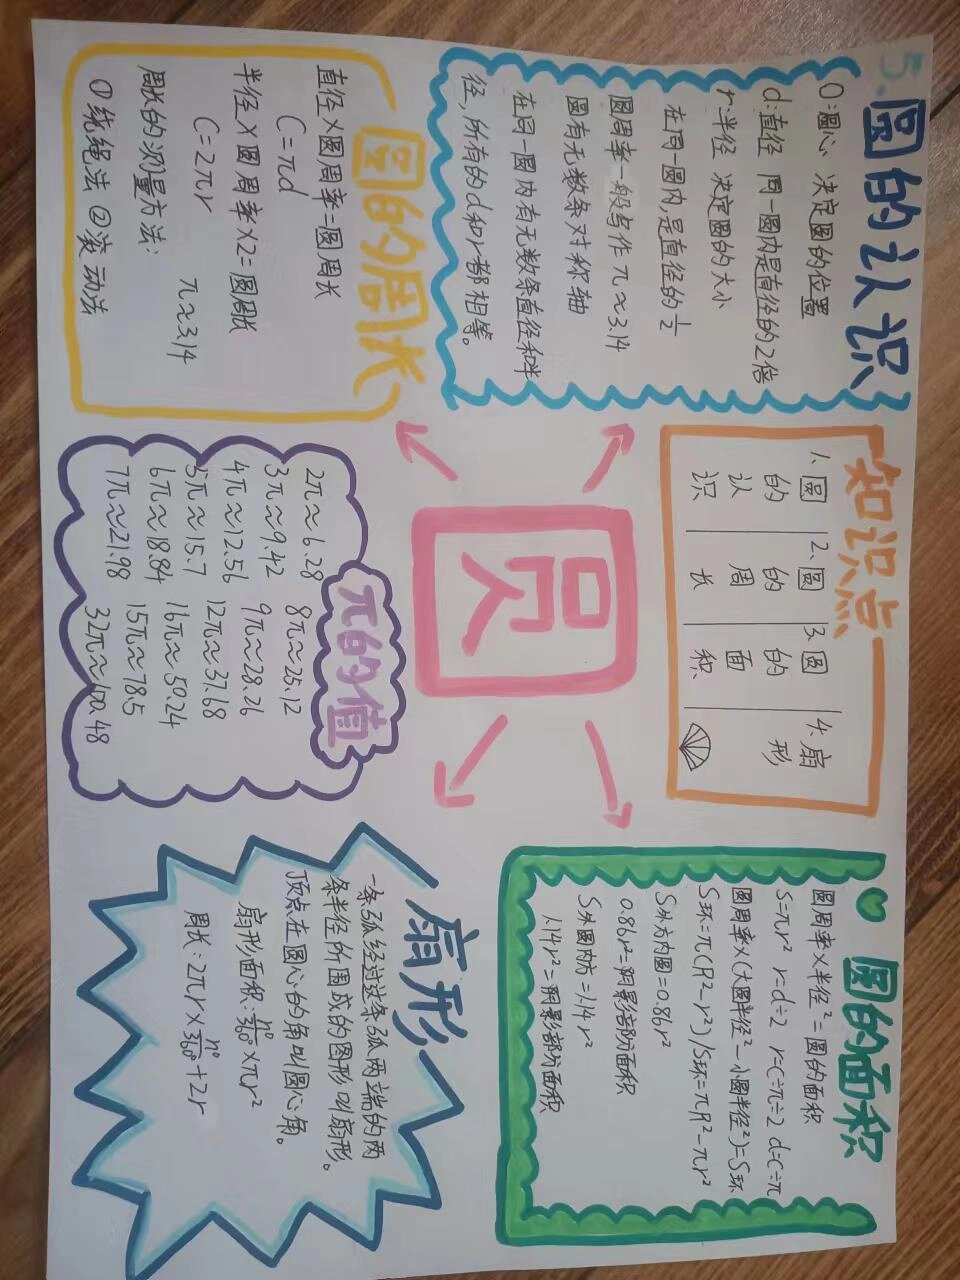 5.圆的认识
O:圆心 决定圆的位置
d:直径 同一圆内是直径的2倍
r:半径 决定圆的大小
在同一圆内,是直径的1/2
圆周率一般写作 π≈3.14
圆有无数条对称轴
在同一圆内有无数条直径和半
径,所有的d和r都相等。
知识点
1.圆的认识
2.圆的周长
3.圆的面积
4.扇形
圆的面积
圆周率×半径²=圆的面积
S=πr² r=d÷2 r=C÷π÷2 d=C÷π
圆周率×(大圆半径²-小圆半径²)=S环
S环=π(R²-r²)/S环=πR²-πr²
S外方内圆=0.86r²
0.86r²=阴影部分面积
S外圆内方=1.14r²
1.14r²=阴影部分面积
圆的周长
直径×圆周率=圆周长
C=πd
半径×圆周率×2=圆周长
C=2πr π≈3.14
周长的测量方法:
①绕绳法 ②滚动法
圆
π的值
2π≈6.28 8π≈25.12
3π≈9.42 9π≈28.26
4π≈12.56 12π≈37.68
5π≈15.7 16π≈50.24
6π≈18.84 15π≈78.5
7π≈21.98 32π≈100.48
扇形
一条弧经过这条弧两端的两
条半径所围成的图形叫扇形。
顶点在圆心的角叫圆心角。
扇形面积:n°/360°×πr²
周长:2πr×n°/360°+2r